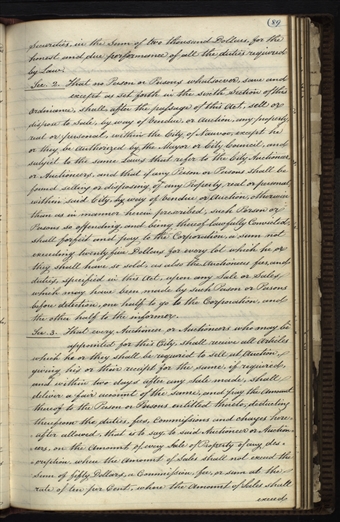 (89
Securities, in the Sum of two thousand Dollars, for the
honest and due performance of all the duties required
by Law.
Sec. 2. That no Person or Persons whatsoever save and
except as set forth in the sixth Section of this
Ordinance, shall, after the passage of this Act, sell or
dispose to Sale, by way of Vendue or Auction, any property,
real or personal, within the City of Nauvoo, except he
or they be Authorized by the Mayor or City Council, and
subject to the same Laws that refer to the City Auctioneer
or Auctioneers, and that if any Person or Persons shall be
found selling or disposing of any Property, real or personal
within said City by way of Vendue or Auction, otherwise
than as in manner herein prescribed, such Person or
Persons so offending, and being thereof lawfully Convicted,
shall forfeit and pay to the Corporation, a sum not
exceeding twenty five Dollars for every lot which he or
they shall have so sold: as also the Auctioneers fees, and
duties, specified in this Act, upon any Sale or Sales
which may have been made by such Person or Persons
before detection, one half to go to the Corporation, and
the other half to the informer.
Sec. 3. That every Auctioneer or Auctioneers who may be
appointed for this City, shall receive all Articles
which he or they shall be required to sell at Auction,
giving his or their receipt for the same, if required,
and within two days after any Sale made, shall
deliver a fair account of the same, and pay the Amount
thereof to the Person or Persons entitled thereto, deducting
therefrom the duties, fees, Commissions and charges here-
after allowed; that is to say, to said Auctioneer or Auction-
eers, on the Amount of every Sale of Property of any des-
cription, when the Amount of Sales shall not exceed the
Sum of fifty Dollars, a Commission, fee, or sum at the
rate of ten per Cent; when the Amount of Sales shall
exceed